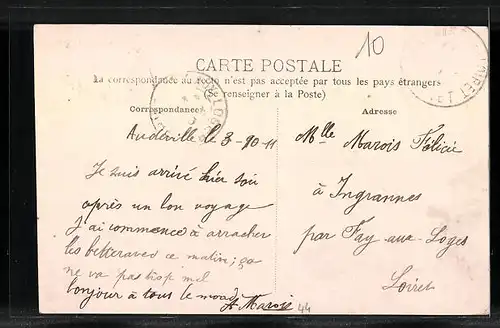 10
CARTE POSTALE
La correspondance au recto n'est pas acceptée par tous les pays étrangers
renseigner à la Poste)
Correspondance
Adresse
Audeville le 3-10-11
Je suis arrivé hier soir
après un bon voyage
J'ai commencé à arracher
les betteraves ce matin; ça
ne va pas trop mal
bonjour à tous le monde
Marois
44
Mlle Marois Félicie
à Ingrannes
par Fay-aux-Loges
Loiret